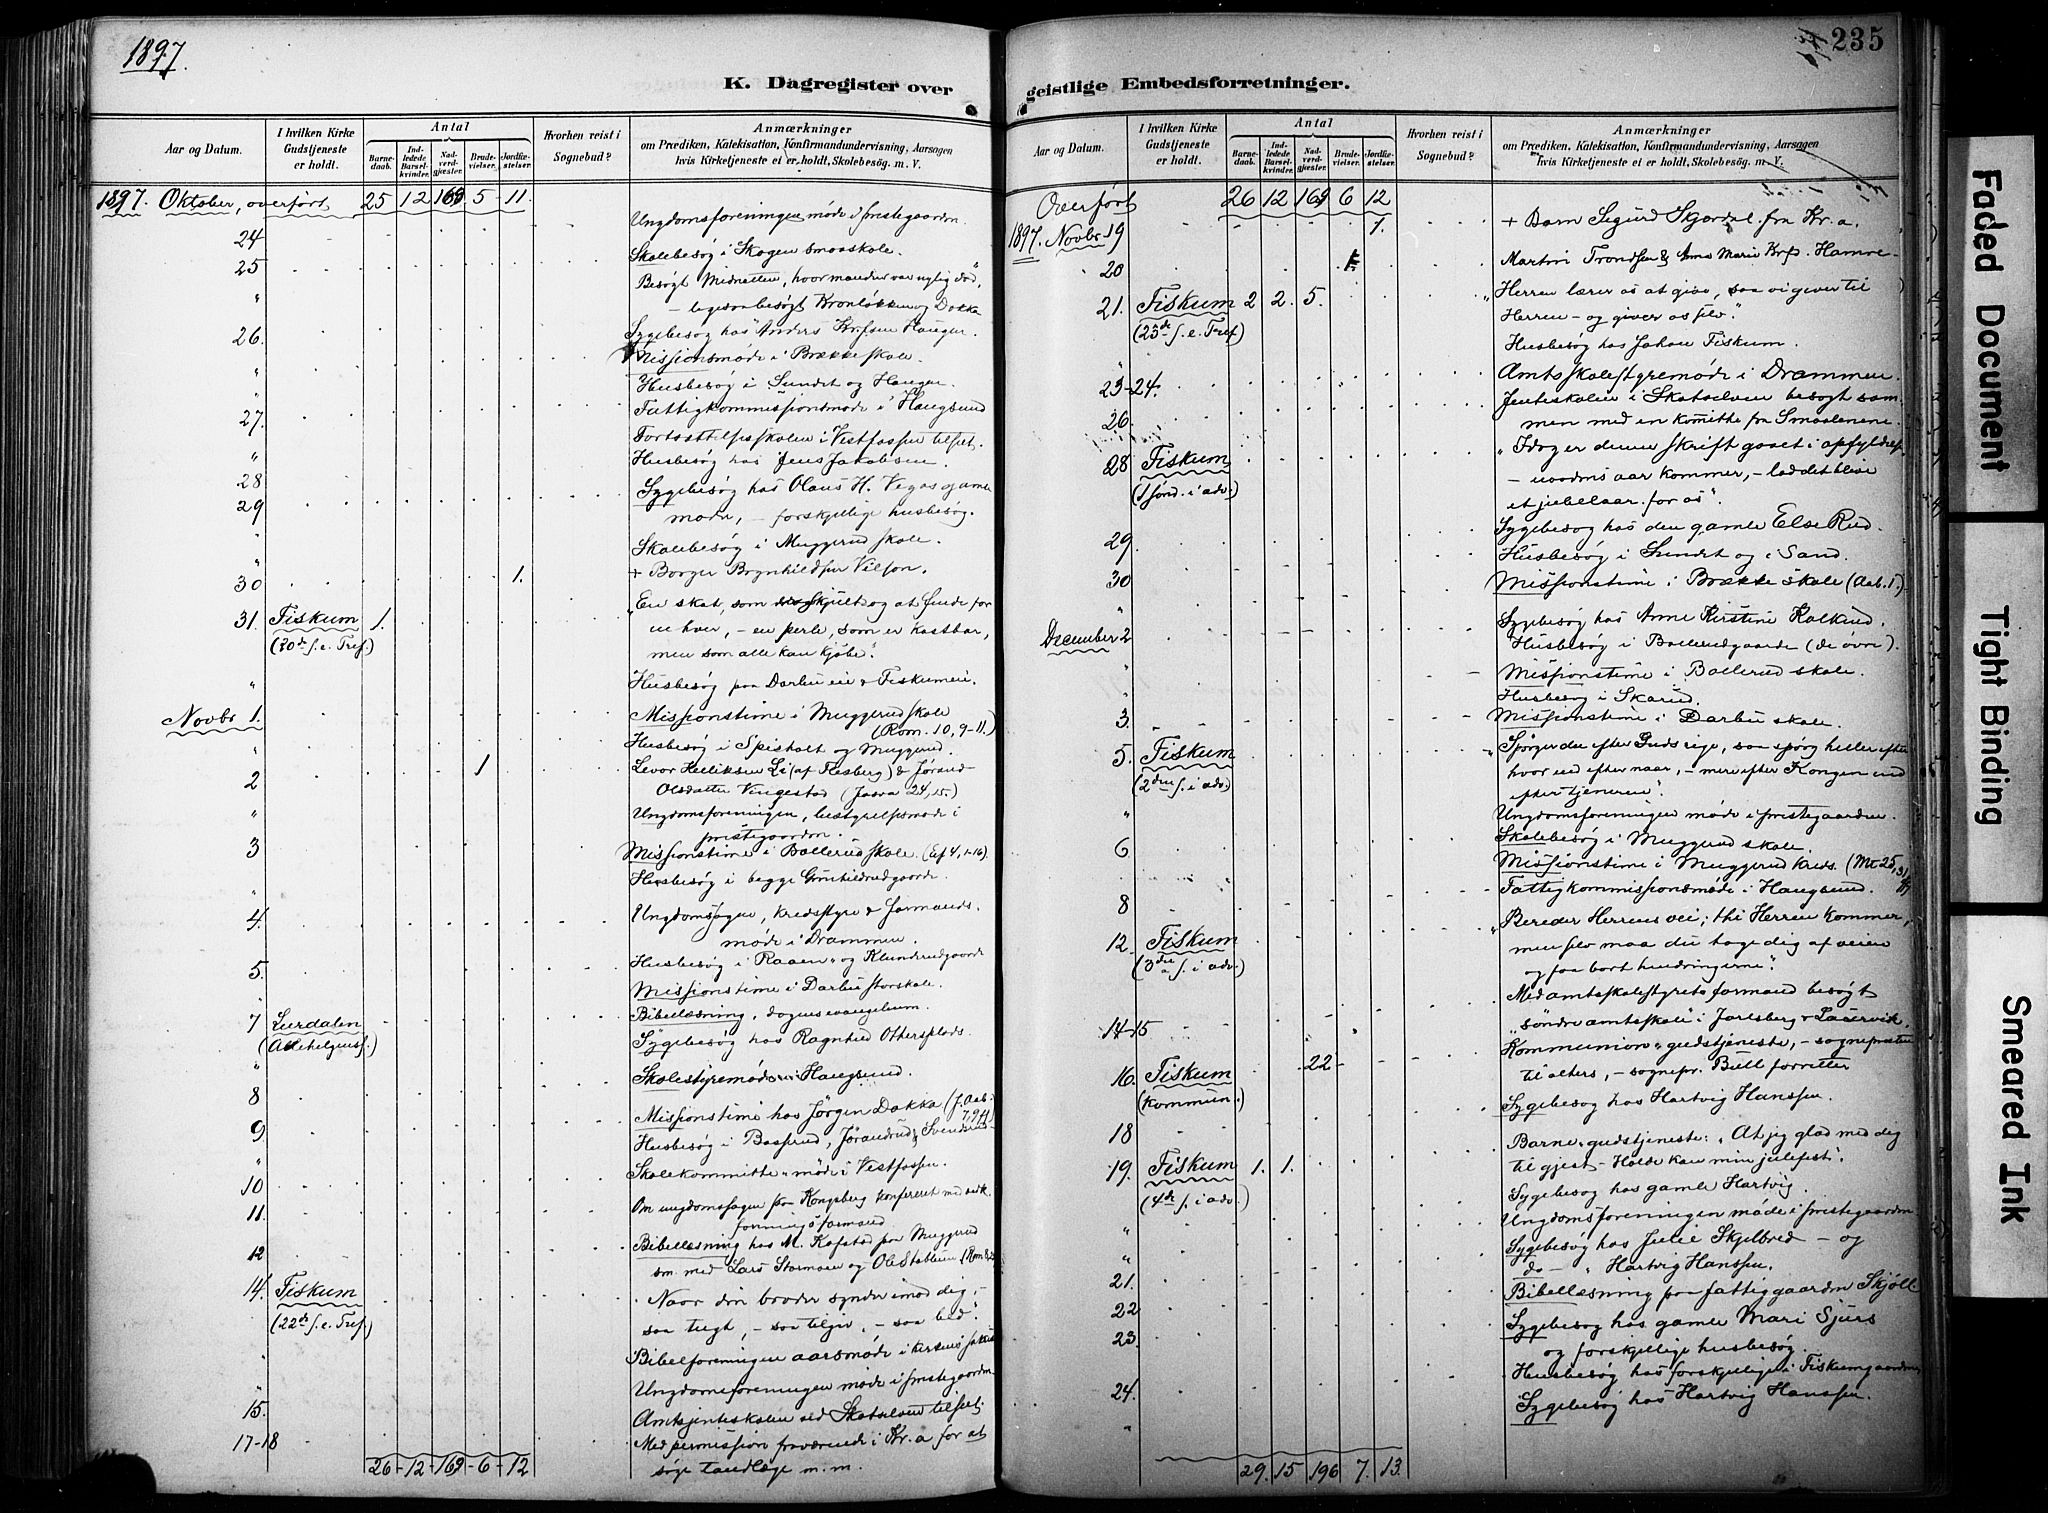 1897.
K. Dagregister over
Aar og Datum.
I hvilken Kirke Gudstjeneste er holdt.
Antal
Barnedaab.
Indledede Barselkvinder.
Nadverdgjæster.
Brudevielser.
Jordfæstelser.
Hvorhen reist i Sognebud?
Anmærkninger
om Prædiken, Katekisation, Konfirmandundervisning, Aarsagen
hvis Kirketjeneste ei er holdt, Skolebesög. m. V.
1897. Oktober, overført 25 12 169 5 11.
24 Ungdomsforeningen møde i præstegaarden.
25 Skolebesøg i Skogen smaaskole.
" Besøgt Midnatten, hvor manden var nylig død,
- ligesaa besøgt Kronløkken og Dokka
26. Sygebesøg hos Anders Krfsen Haugen.
" Missionsmøde i Brække skole.
" Husbesøg i Sundet og Haugen.
27. Fattigkommissionsmøde i Haugsund
" Fortsættelsesskolen i Vestfossen tilset.
28 Husbesøg hos Jens Jakobsen.
29 Sygebesøg hos Olaus H. Vegas gamle
moder, - forskjellige husbesøg.
" Skolebesøg i Muggerud skole.
30 1. + Borger Brynhildsen Vilson.
31. Fiskum 1. "En skat, som skjult og at finde for
(20de s. e. Tref.) en hver, - en perle, som er kostbar,
men som alle kan kjøbe".
" Husbesøg paa Darbu eie & Fiskumeie.
Novbr 1. Missionstime i Muggerud skole
(Rom. 10, 9-11.)
" Husbesøg i Spisholt og Muggerud.
2 1 Levor Helliksen Li (af Flesberg) & Jørand
Olsdatter Vingestad (Josva 24, 15.)
" Ungdomsforeningen, bestyrelsesmøde i
præstegaarden.
3 Missionstime i Bollerud skole. (Ef 4, 1-16).
" Husbesøg i begge Gunhildrudgaarde.
4. Ungdomssagen, kredsstyre & formands-
møde i Drammen.
5. Husbesøg i Raaen- og Klunderudgaarde
" Missionstime i Darbu storskole.
7 Lurdalen Bibellæsning, dagens evangelium.
(Allehelgensf.)
" Sygebesøg hos Ragnhild Ottersplads.
8 Skolestyremøde i Haugsund.
9 Missionstime hos Jørgen Dokka (J. Aab.
7, 9 ff)
" Husbesøg i Basserud, Jørandrud & Svendsrud
10 Skolekommitte-møde i Vestfossen.
11. Om ungdomssagen paa Kongsberg konfereret med
foreningsformand
12 Bibellæsning hos M. Kopstad paa Muggerud
sm. med Lars Stormoen og Ole Stablum (Rom 8
14. Fiskum Naar din broder synder imod dig, -
(22de s. e. Tref.) saa tugt, - saa tilgiv, - saa bed".
" Bibelforeningen aarsmøde i kirkens
" Ungdomsforeningen møde i præstegaarden
15. Amtsjenteskolen ved Skotselven tilset.
17-18 Med permission fraværende i Kr.a for at
søge tandlæge m. m.
26 - 12 - 169 - 6 - 12
geistlige Embedsforretninger.
235
Aar og Datum.
I hvilken Kirke Gudstjeneste er holdt.
Antal
Barnedaab.
Indledede Barselkvinder.
Nadverdgjæster.
Brudevielser.
Jordfæstelser.
Hvorhen reist i Sognebud?
Anmærkninger
om Prædiken, Katekisation, Konfirmandundervisning, Aarsagen
hvis Kirketjeneste ei er holdt, Skolebesög. m. V.
Overført 26 12 169 6 12
1897. Novbr 19 1. + Barn Sigurd Skjørdal fra Kr.a.
20 1. Martin Trondsen & Anne Marie Krfsd. Hamre
21. Fiskum 2 2. 5. "Herren lærer os at give, saa vi giver til
(23de s. e. Tref) Herren - og giver os selv."
" Husbesøg hos Johan Fiskum.
23-24. Amtsskolestyremøde i Drammen.
26 Jenteskolen i Skotselven besøgt sam-
men med en komitte fra Smaalenene.
28 Fiskum "Idag er denne skrift gaaet i opfyldelse
(1 sønd. i adv.) - naadens aar kommer, - lad det blive
et jubelaar for os".
29 Sygebesøg hos den gamle Else Rud.
30 Husbesøg i Sundet og i Sand.
" Missionstime i Brække skole (Aab. 1.)
December 2 Sygebesøg hos Anne Kirstine Kolkind.
" Husbesøg i Bollerudgaarde (de øvre).
" Missionstime i Bollerud skole.
3. Husbesøg i Skarud.
" Missionstime i Darbu skole.
5. Fiskum "Spørger du efter Guds rige, saa spørg heller efter
(2den s. i adv.) hvor end efter naar, - mere efter Kongen end
efter tjeneren".
" Ungdomsforeningen møde i præstegaarden.
6 Skolebesøg i Muggerud skole.
Missionstime i Muggerud kreds. (Mt 25, 31
8 Fattigkommissionsmøde i Haugsund. ff)
12 Fiskum "Bereder Herrens vei; thi Herren kommer,
(3die s. i adv.) men selv maa du tage dig af veien
og faa bort hindringerne".
14-15 Med amtsskolestyrets formand besøgt
"søndre amtsskole" i Jarlsberg & Laurvik.
16. Fiskum 22 Kommunion-gudstjeneste, - sognepresten
(kommun.) til alters, - sognepr. Bull forretter
18 Sygebesøg hos Hartvig Hanssen.
19. Fiskum 1. 1. Barne-gudstjeneste: "At jeg glad med dig
(4de s. i adv.) til gjest - Holde kan min julefest".
" Sygebesøg hos gamle Hartvig.
" Ungdomsforeningen møde i præstegaarden
21. Sygebesøg hos Julie Skjelbred - og
do - " Hartvig Hanssen.
22 Bibellæsning paa fattiggaarden Skjøll
23 Sygebesøg hos gamle Mari Sjurs
og forskjellige husbesøg.
24. Husbesøg hos forskjellige i Fiskumgaardene
" Sygebesøg hos Hartvig Hanssen.
29. 15 196 7. 13.
Faded Document
Tight Binding
Smeared Ink